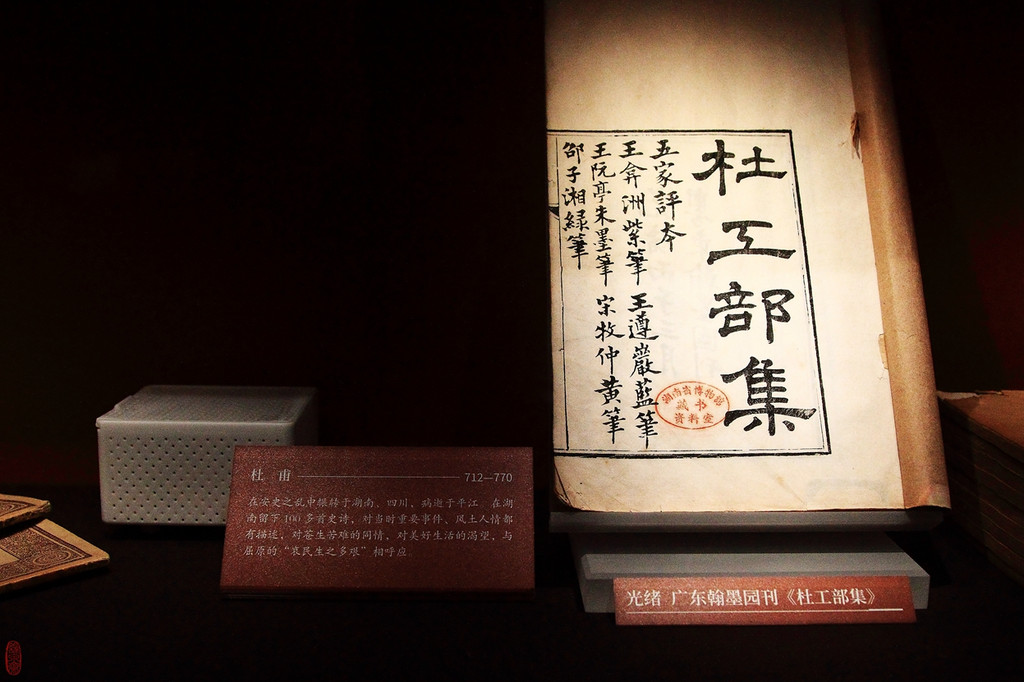 杜工部集
五家評本
王弇洲紫筆 王遵巖藍筆
王阮亭朱墨筆 宋牧仲黃筆
邵子湘綠筆
湖南省博物館
藏书
资料室
杜甫 712—770
在安史之乱中辗转于湖南、四川，病逝于平江。在湖
南留下100多首史诗，对当时重要事件、风土人情都
有描述，对苍生苦难的同情，对美好生活的渴望，与
屈原的“哀民生之多艰”相呼应。
光绪 广东翰墨园刊《杜工部集》